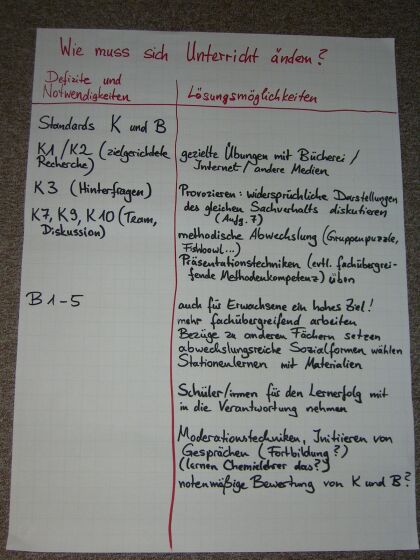 Wie muss sich Unterricht ändern?
Defizite und
Notwendigkeiten
Lösungsmöglichkeiten
Standards K und B
K1/K2 (zielgerichtete
Recherche)
gezielte Übungen mit Bücherei/
Internet/andere Medien
K3 (Hinterfragen)
Provozieren: widersprüchliche Darstellungen
des gleichen Sachverhalts diskutieren
(Aufg. 7)
K7, K9, K10 (Team,
Diskussion)
methodische Abwechslung (Gruppenpuzzle,
Fishbowl...)
Präsentationstechniken (evtl. fachübergrei-
fende Methodenkompetenz) üben
B1-5
auch für Erwachsene ein hohes Ziel!
mehr fachübergreifend arbeiten
Bezüge zu anderen Fächern setzen
abwechslungsreiche Sozialformen wählen
Stationenlernen mit Materialien
Schüler/innen für den Lernerfolg mit
in die Verantwortung nehmen
Moderationstechniken, Initiieren von
Gesprächen (Fortbildung?)
(lernen Chemielehrer das?)
notenmäßige Bewertung von K und B?